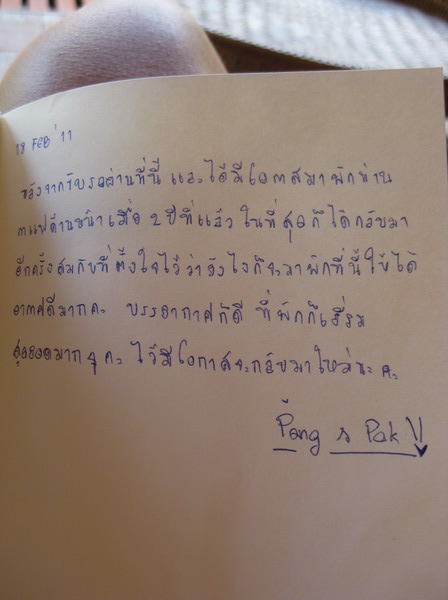 18 FEB '11
หลังจากรีบรอผ่านที่นี่ และได้มีโอกาสมาพักผ่าน
กาแฟด้านหน้าเมื่อ 2 ปีที่แล้ว ในที่สุดก็ได้กลับมา
อีกครั้งสมกับที่ตั้งใจไว้ว่ายังไงก็จะมาพักที่นี่ให้ได้
อากาศดีมากค่ะ บรรยากาศก็ดี ที่พักก็เยี่ยม
สุดยอดมากๆ ค่ะ ไว้มีโอกาสจะกลับมาใหม่นะคะ
Pang & Pak !!